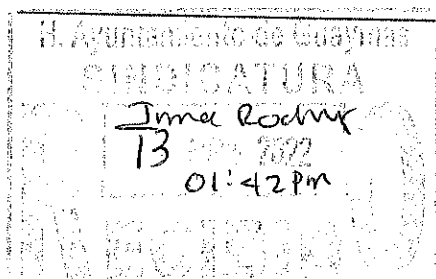 H. Ayuntamiento de Guaymas
SINDICATURA
Irma Rodrix
13 2022
01:42 Pm
RECIBIDO